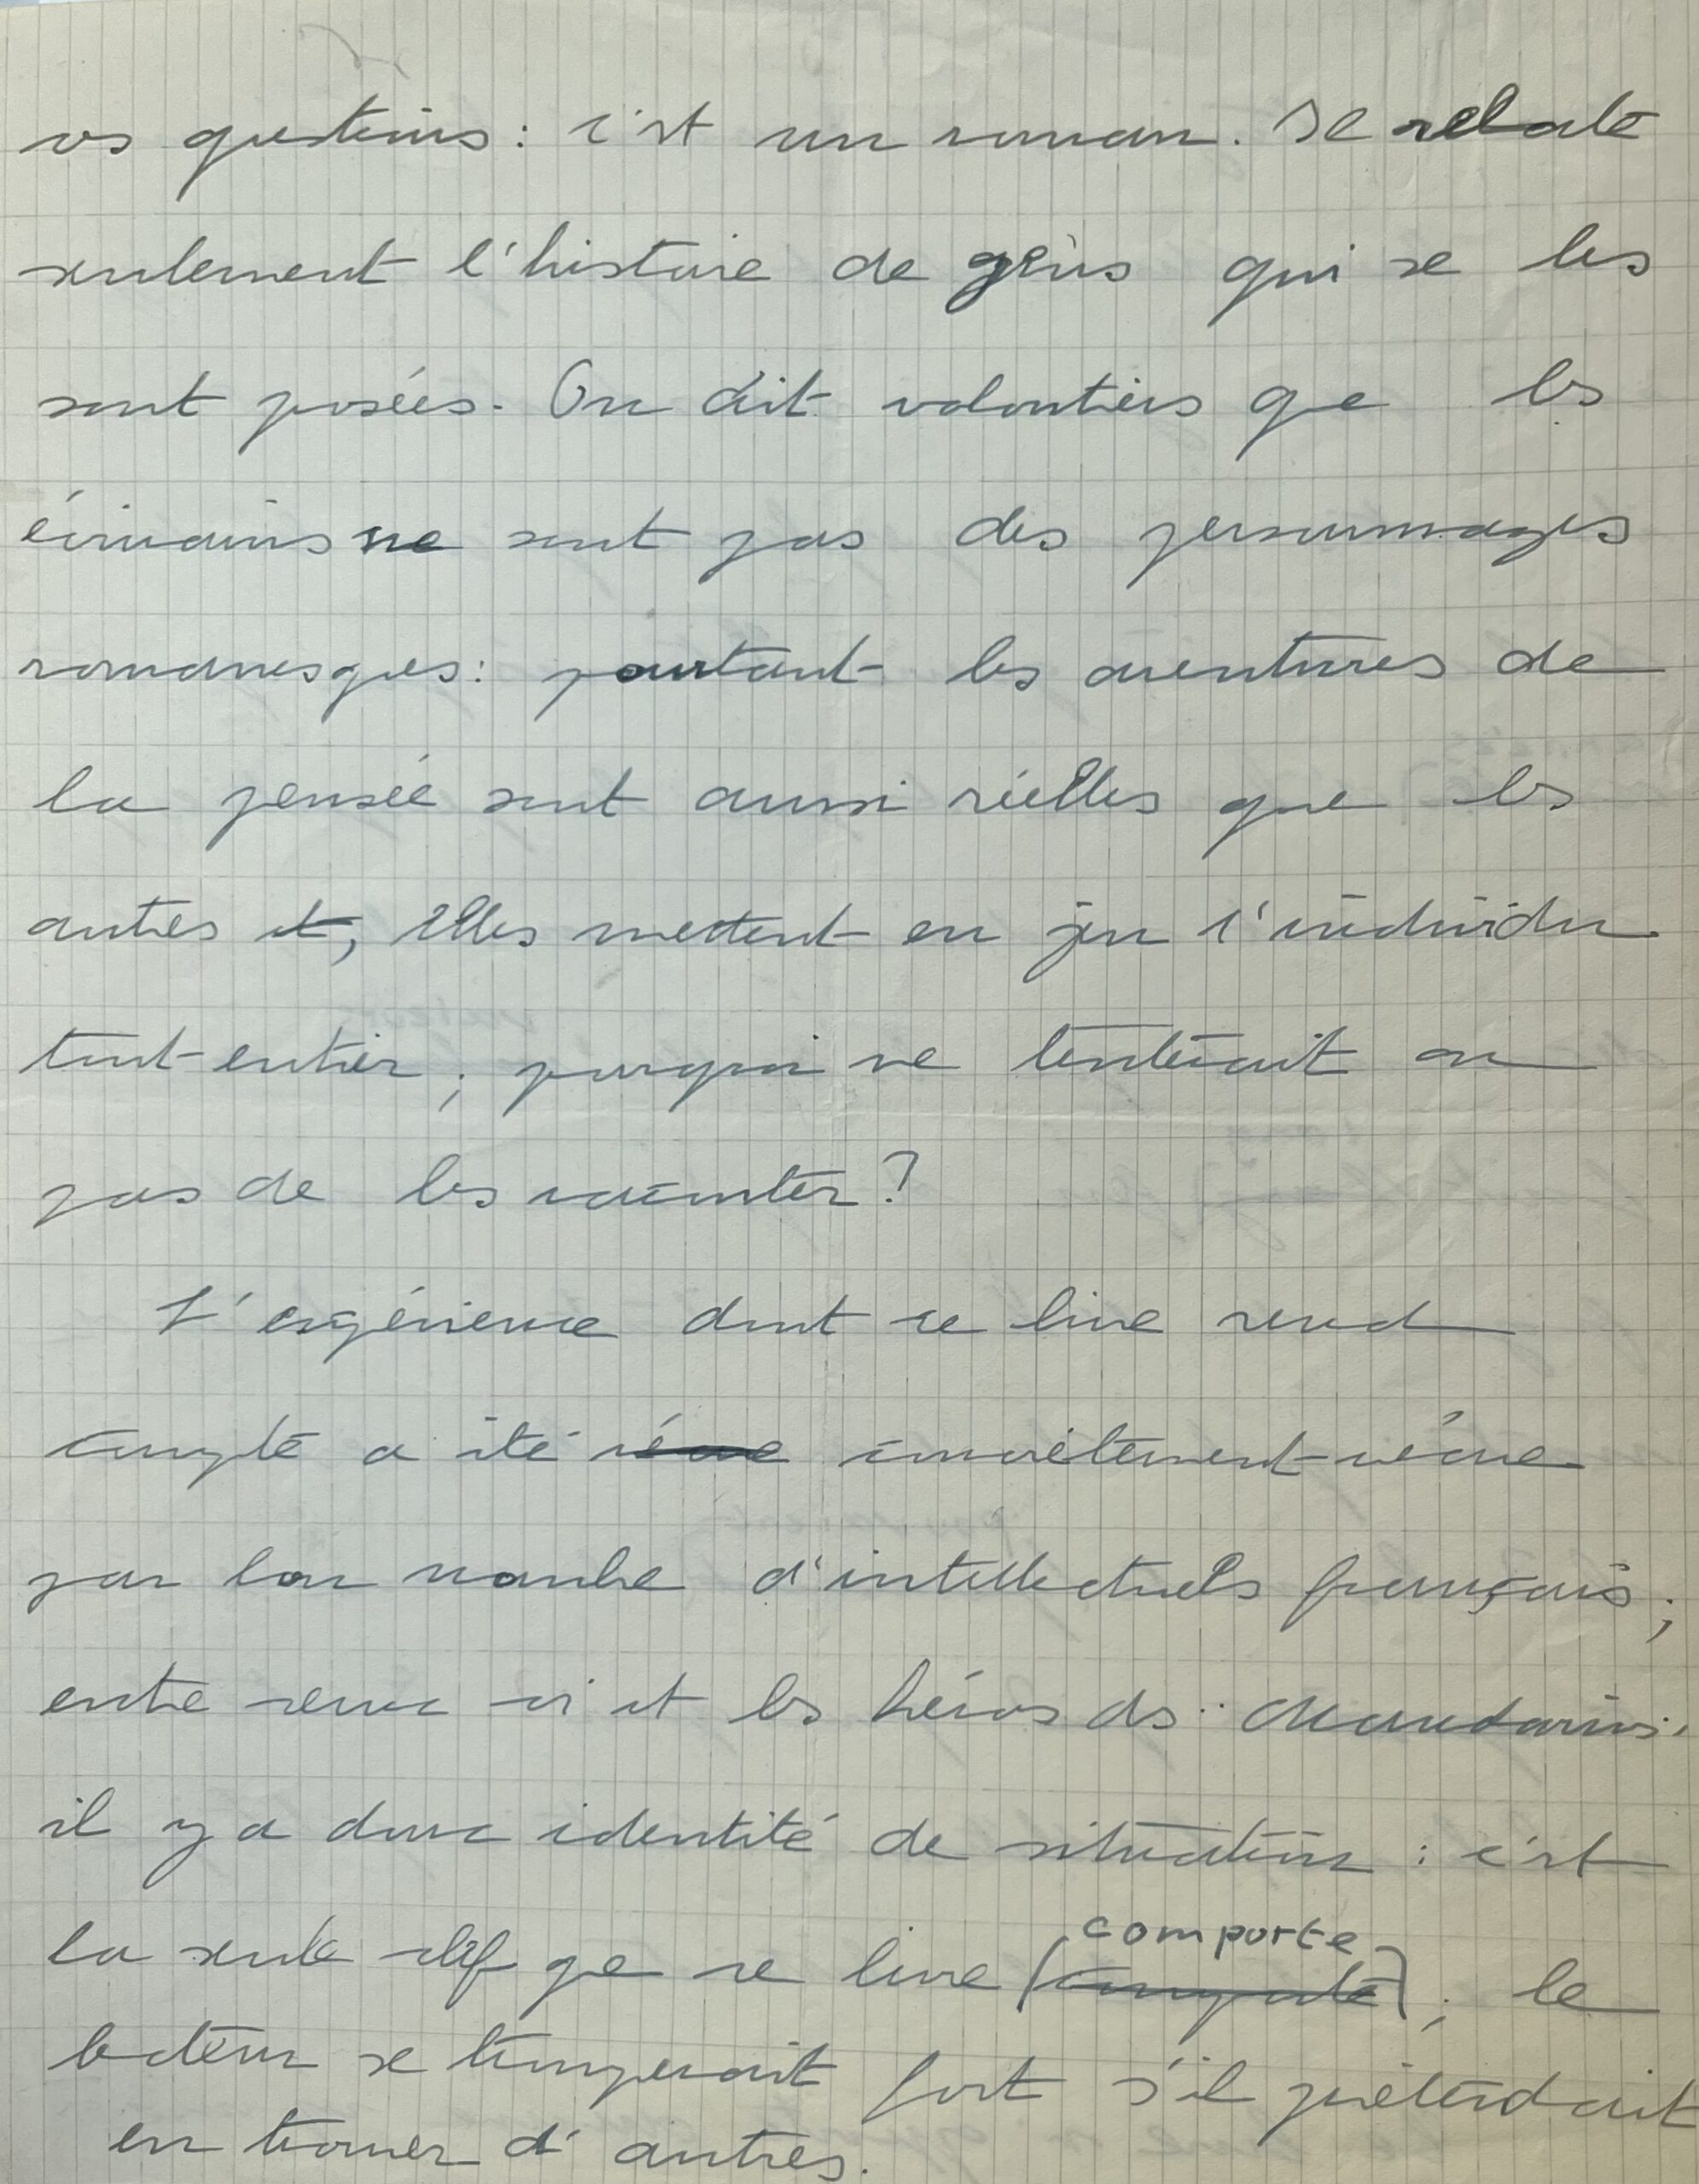 os questions : c'est un roman. Je relate
seulement l'histoire de gens qui se les
sont posées. On dit volontiers que les
écrivains ne sont pas des personnages
romanesques : pourtant les aventures de
la pensée sont aussi réelles que les
autres et, elles mettent en jeu l'individu
tout entier ; pourquoi ne tenterait on
pas de les raconter ?
L'expérience dont ce livre rend
compte a été vécue concrètement vécue
par bon nombre d'intellectuels français ;
entre ceux ci et les héros des "Mandarins"
il y a donc identité de situation : c'est
comporte
la seule clef que ce livre (comporte) ; le
lecteur se tromperait fort s'il prétendait
en trouver d'autres.